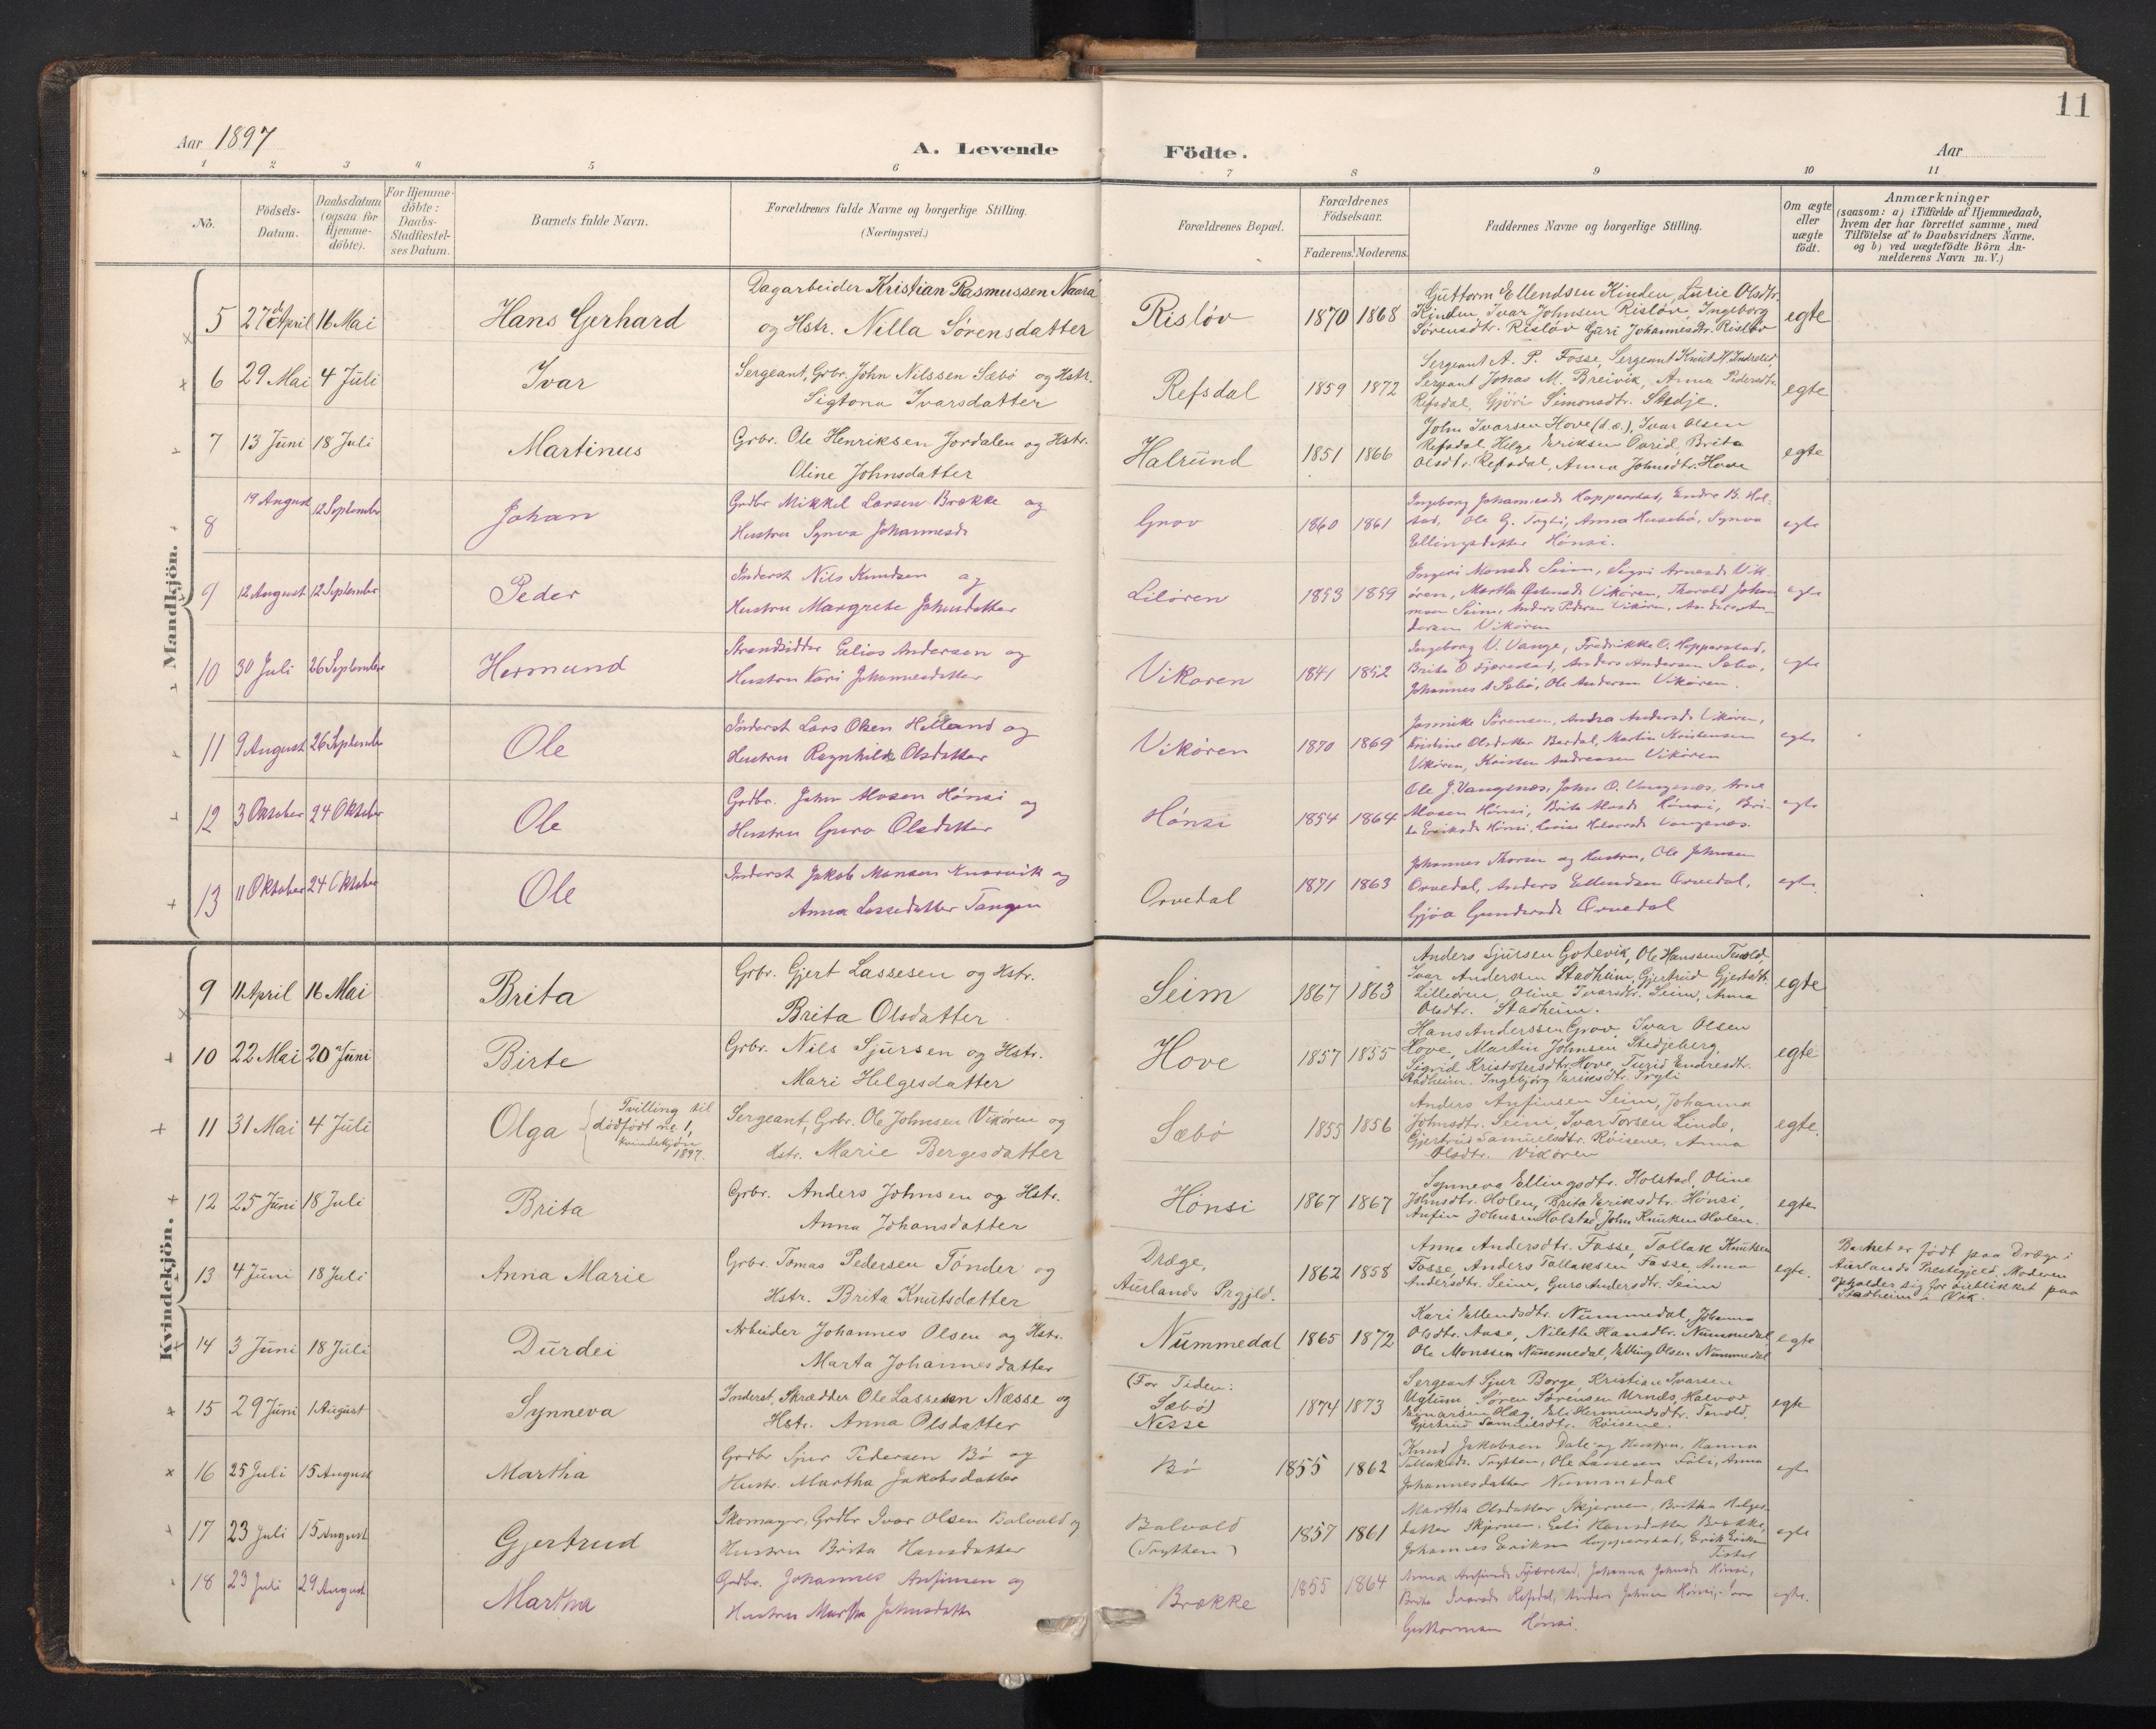 11
Aar 1897
A. Levende Födte.
Aar
1 2 3 4 5 6 7 8 9 10 11
No.
Födsels-Datum.
Daabsdatum (ogsaa for Hjemme-döbte).
For Hjemme-döbte: Daabs-Stadfæstel-ses Datum.
Barnets fulde Navn.
Forældrenes fulde Navne og borgerlige Stilling.
(Næringsvei.)
Forældrenes Bopæl.
Forældrenes Födselsaar.
Faderens. Moderens.
Faddernes Navne og borgerlige Stilling.
Om ægte eller uægte födt.
Anmærkninger
(saasom: a) i Tilfælde af Hjemmedaab,
hvem der har forrettet samme, med
Tilföielse af to Daabsvidners Navne,
og b) ved uægtefödte Börn An-
melderens Navn m. V.)
Mandkjön.
5 27de April 16 Mai Hans Gerhard
Dagarbeider Kristian Rasmussen Naara
og Hstr. Nilla Sørensdatter
Risløv 1870 1868
Guttorm Ellendsen Kinden, Lucie Olsdtr.
Kinden, Ivar Johnsen Risløv, Ingeborg
Sørensdtr. Risløv Guri Johannesdtr. Risløv
egte
6 29 Mai 4 Juli Ivar
Sergeant, Grbr. John Nilssen Sæbö og Hstr.
Sigtona Ivarsdatter
Refsdal 1859 1872
Sergeant A. P. Fosse, Sergeant Knut N. Indrelid,
Sergeant Jonas M. Breivik, Anna Pedersdtr.
Refsdal, Gjöri Simonsdtr. Stedje.
egte
7 13 Juni 18 Juli Martinus
Grbr. Ole Henriksen Jordalen og Hstr.
Oline Johnsdatter
Halrund 1851 1866
John Ivarsen Hove (d. æ.), Ivar Olsen
Refsdal, Helge Eriksen Ovrid, Brita
Olsdtr. Refsdal, Anna Johnsdtr. Hove
egte
8 19 August 12 September Johan
Grdbr Mikkel Larsen Brække og
Hustru Synva Johannesdr
Grov 1860 1861
Ingeborg Johannesdr Hopperstad, Endre B. Hol-
stad, Ole G. Tryti, Anna Husebö, Synva
Ellingsdatter Hönsi.
egte
9 12 August 12 September Peder
Inderst Nils Knudsen og
Hustru Margrete Johnsdatter
Lilören 1853 1859
Ingeri Monsdr Seim, Sigri Arnesdr Vik-
ören, Martha Östensdr Vikören, Thorald Johan
nessen Seim, Anders Pedersen Vikören, Anders An-
dersen Vikören
egte
10 30 Juli 26 September Hermund
Strandsidder Elias Andersen og
Hustru Kari Johannesdatter
Vikoren 1841 1852
Ingeborg V. Vange, Fredrikke O. Hopperstad,
Brita O Fjærestad, Anders Andersen Sæbø,
Johannes A Sæbö, Ole Andersen Vikören.
egte
11 9 August 26 September Ole
Inderst Lars Olsen Helland og
Hustru Ragnhilde Olsdatter
Vikören 1870 1869
Jannike Sörensen, Andrea Andersdr Vikören,
Kristine Olsdatter Bardal, Martin Kristensen
Vikören, Kristen Andreassen Vikören
egte
12 3 Oktober 24 Oktober Ole
Grdbr. John Mosen Hönsi og
Hustru Guro Olsdatter
Hönsi 1854 1864
Ole J. Vangsnes, John O. Vangsnes, Arne
Mosen Hönsi, Brita Monsdr Hönsi, Bri-
ta Eriksdr Hönsi, Halvorsdr Vangsnes.
egte
13 11 Oktober 24 Oktober Ole
Inderst Jakob Monsen Knarvik og
Anna Lassedatter Tangen
Orvedal 1871 1863
Johannes Thorsen og Hustru, Ole Johnsen
Orvedal, Anders Ellendsen Orvedal,
Gjöa Gundersdr Orvedal
egte.
Kvindekjön.
9 11 April 16 Mai Brita
Grbr. Gjert Lassesen og Hstr.
Brita Olsdatter
Seim 1867 1863
Anders Sjursen Gotevik, Ole Hanssen Tenold,
Ivar Anderssen Stadheim, Gjertrud Gjertsdtr.
Lilliören, Oline Ivarsdtr. Seim, Anna
Olsdtr. Stadheim.
egte
10 22 Mai 20 Juni Birte
Grbr. Nils Sjursen og Hstr.
Mari Helgesdatter
Hove 1857 1855
Hans Anderssen Grov, Ivar Olsen
Hove, Martin Johnsen Stedjeberg,
Sigrid Kristofersdtr. Hove, Turid Endresdtr.
Stadheim, Ingebjörg Eriksdtr. Tryti
egte
11 31 Mai 4 Juli Olga
Tvilling til
dödfödt nr. 1,
kvindekjön
1897.
Sergeant, Grbr. Ole Johnsen Vikören og
Hstr. Marie Bergesdatter
Sæbö 1855 1856
Anders Anfinsen Seim, Johanna
Johnsdtr. Seim, Ivar Torsen Linde,
Gjertrud Samuelsdtr. Röisene, Anna
Olsdtr. Vikören
egte.
12 25 Juni 18 Juli Brita
Grbr. Anders Johnsen og Hstr.
Anna Johansdatter
Hönsi 1867 1867
Synneva Ellingsdtr. Holstad, Oline
Johnsdtr. Holen, Brita Eriksdtr. Hönsi,
Anfin Johnsen Holstad, John Knutsen Holen.
egte
13 4 Juni 18 Juli Anna Marie
Grbr. Tomas Pedersen Tönder og
Hstr. Brita Knutsdatter
Dræge,
Aurlands Prgjld. 1862 1858
Anna Andersdtr. Fosse, Tollak Knutsen
Fosse, Anders Tollaksen Fosse, Anna
Andersdtr. Seim, Guro Andersdtr. Seim
egte.
Barnet er födt paa Dræge i
Aurlands Prestegjeld. Moderen
opholder sig for öieblikket paa
Stadheim i Vik.
14 3 Juni 18 Juli Durdei
Arbeider Johannes Olsen og Hstr.
Marta Johannesdatter
Nummedal 1865 1872
Kari Ellendsdtr. Nummedal, Johanna
Olsdtr. Aase, Niletla Hansdtr. Nummedal,
Ole Monssen Nummedal, Elling Olsen Nummedal
egte
15 29 Juni 1 August Synneva
Inderst, Skrædder Ole Lassesen Næsse og
Hstr. Anna Olsdatter
(For Tiden:
Sæbö)
Nesse 1874 1873
Sergeant Sjur Borge, Kristian Ivarsen
Uglum, Sören Sörensen Urnæs, Halvor
Hæg, Eli Hermundsdtr. Tenold,
Gjertrud Samuelsdtr. Röisene.
egte
16 25 Juli 15 August Martha
Grdbr Sjur Pedersen Bö og
Hustr. Martha Jakobsdatter
Bö 1855 1862
Knud Jakobsen Dale og Hustru, Hanna
Tollaksdr. Trytten, Ole Lassesen Föli, Anna
Johannesdatter Nummedal
egte
17 23 Juli 15 August Gjertrud
Skomager, Grdbr Ivar Olsen Balvold og
Hustru Brita Hansdatter
Balvold
(Trytten) 1857 1861
Martha Olsdatter Skjerven, Britha Helges-
datter Skjerven, Eli Hansdatter Brække,
Johannes Eriksen Hopperstad, Erik Eriksen
Tistel
egte
18 23 Juli 29 August Martha
Grdbr. Johannes Anfinsen og
Hustru Martha Johnsdatter
Brække 1855 1864
Anna Anfinsdr Fjærestad, Johanna Johnsdr Hönsi,
Brita Ivarsdr Refsdal, Anders Johnsen Hönsi, Ivar
Guttormsen Hönsi.
egte.